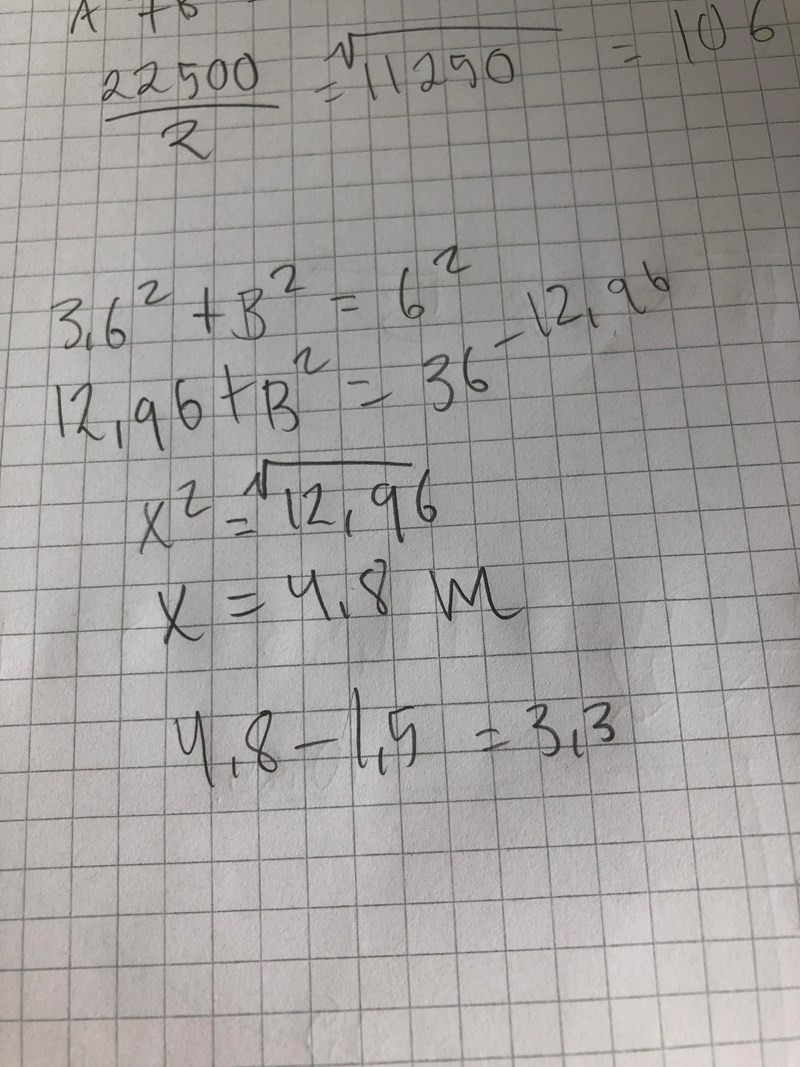 A + B
22500/2 = √11250 = 106
3,6² + B² = 6²
12,96 + B² = 36 - 12,96
x² = √12,96
x = 4,8 m
4,8 - 1,5 = 3,3